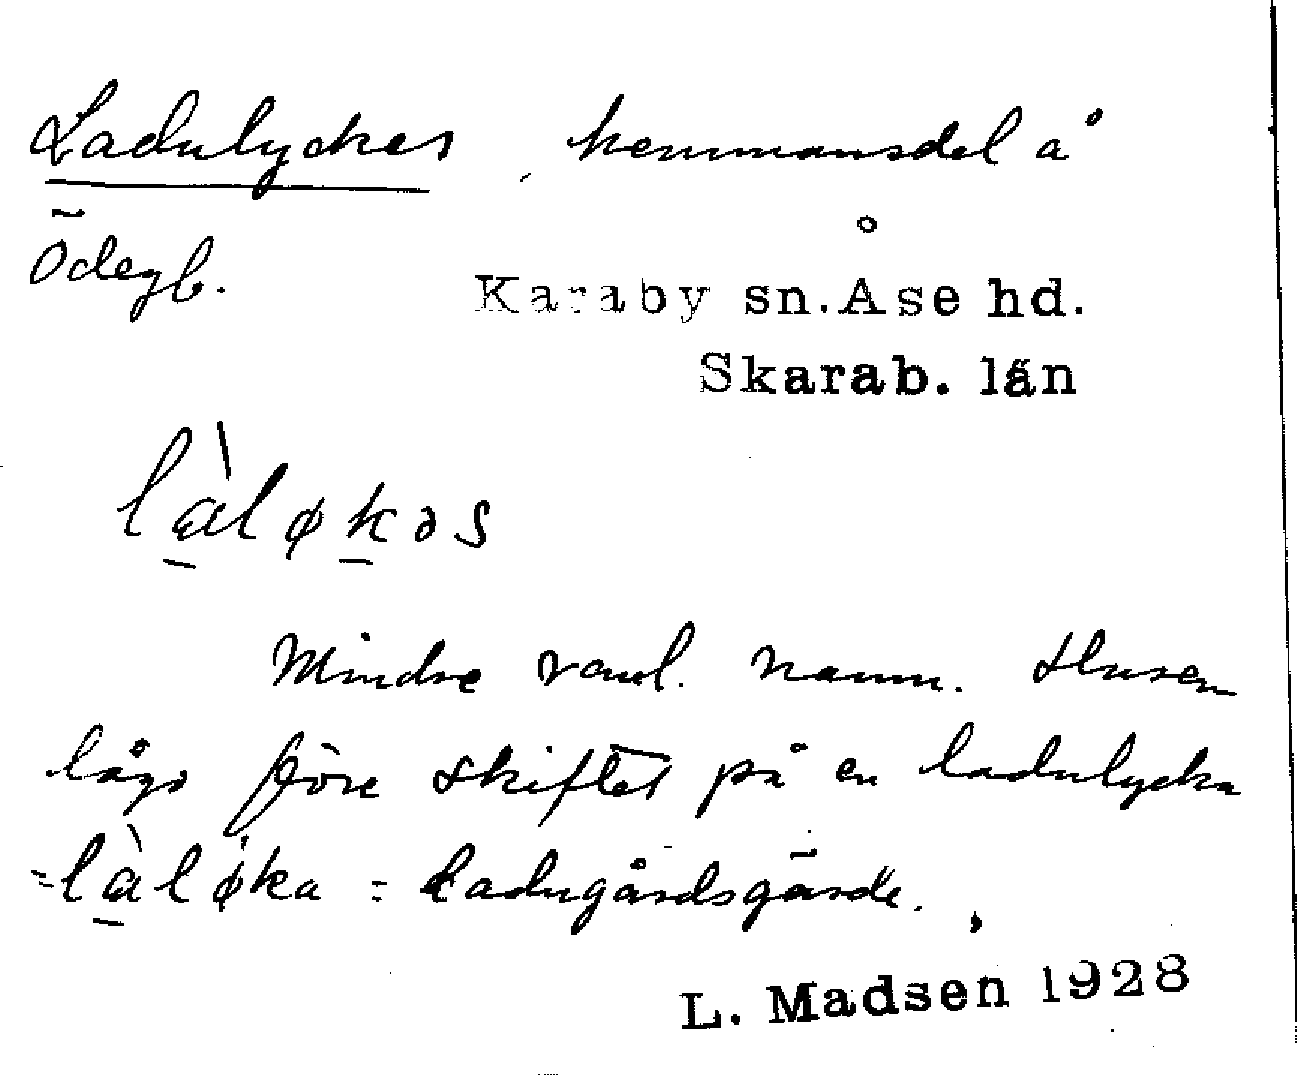 Laduluckes, hemmansdel å
Ödegb.
Karaby sn. Åse hd.
Skarab. län
làløkəs
Mindre vanl. namn. Husen
lågo före skiftet på en ladulycka
= làløka = Ladugårdsgärde.
L. Madsen 1928